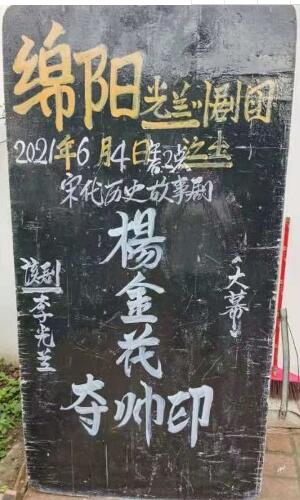 绵阳光兰川剧团
2021年6月4日 2点
宋代历史故事剧
楊金花
夺帅印
大幕
李光兰